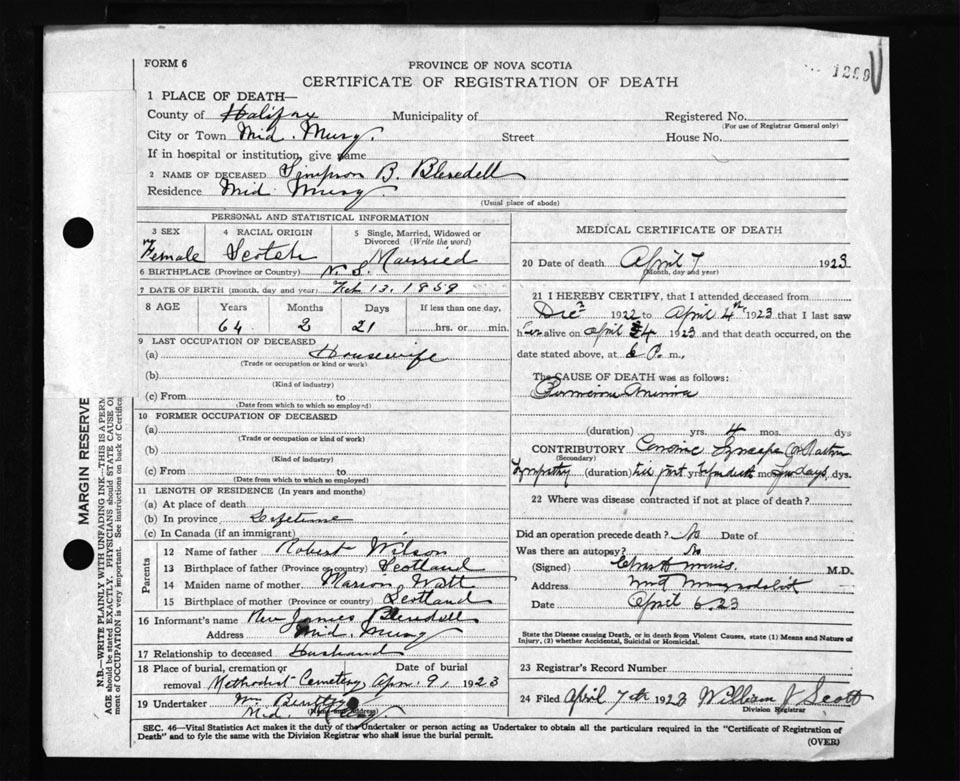 1299
FORM 6
PROVINCE OF NOVA SCOTIA
CERTIFICATE OF REGISTRATION OF DEATH
1 PLACE OF DEATH—
County of Halifax Municipality of Registered No.
(For use of Registrar General only)
City or Town Mid. Musq. Street House No.
If in hospital or institution, give name
2 NAME OF DECEASED Simpson B. Blesedell
Residence Mid. Musq.
(Usual place of abode)
PERSONAL AND STATISTICAL INFORMATION
3 SEX 4 RACIAL ORIGIN 5 Single, Married, Widowed or Divorced (Write the word)
Female Scotch Married
6 BIRTHPLACE (Province or Country) N. S.
7 DATE OF BIRTH (month, day and year) Feb 13, 1859
8 AGE Years Months Days If less than one day,
64 2 21 hrs. or min.
9 LAST OCCUPATION OF DECEASED
(a) Housewife
(Trade or occupation or kind or work)
(b)
(Kind of industry)
(c) From to
(Date from which to which so employed)
10 FORMER OCCUPATION OF DECEASED
(a)
(Trade or occupation or kind of work)
(b)
(Kind of industry)
(c) From to
(Date from which to which so employed)
11 LENGTH OF RESIDENCE (In years and months)
(a) At place of death
(b) In province Lifetime
(c) In Canada (if an immigrant)
Parents
12 Name of father Robert Wilson
13 Birthplace of father (Province or country) Scotland
14 Maiden name of mother Marion Watt
15 Birthplace of mother (Province or country) Scotland
16 Informant's name Rev James Blesedell
Address Mid. Musq
17 Relationship to deceased Husband
18 Place of burial, cremation or removal Date of burial
Methodist Cemetery Apr. 9, 1923
19 Undertaker Wm.
Mid.
MEDICAL CERTIFICATE OF DEATH
20 Date of death April 7 1923
(Month, day and year)
21 I HEREBY CERTIFY, that I attended deceased from
Dec 1922 to April 4th 1923 that I last saw
her alive on April 4 1923 and that death occurred, on the
date stated above, at 6 P. m.
The CAUSE OF DEATH was as follows:
Pernicious Anemia
(duration) yrs. 4 mos. dys
CONTRIBUTORY
(Secondary)
(duration) yrs mos days, dys.
22 Where was disease contracted if not at place of death?
Did an operation precede death? No Date of
Was there an autopsy? No
(Signed) M.D.
Address
Date April 6. 23
State the Disease causing Death, or in death from Violent Causes, state (1) Means and Nature of
Injury, (2) whether Accidental, Suicidal or Homicidal.
23 Registrar's Record Number
24 Filed April 7th 1923 William J Scott
Division Registrar
SEC. 46—Vital Statistics Act makes it the duty of the Undertaker or person acting as Undertaker to obtain all the particulars required in the "Certificate of Registration of
Death" and to fyle the same with the Division Registrar who shall issue the burial permit.
(OVER)
MARGIN RESERVE
N.B.—WRITE PLAINLY WITH UNFADING INK—THIS IS A PERM
AGE should be stated EXACTLY. PHYSICIANS should STATE CAUSE O
ment of OCCUPATION is very important. See instructions on back of Certifica